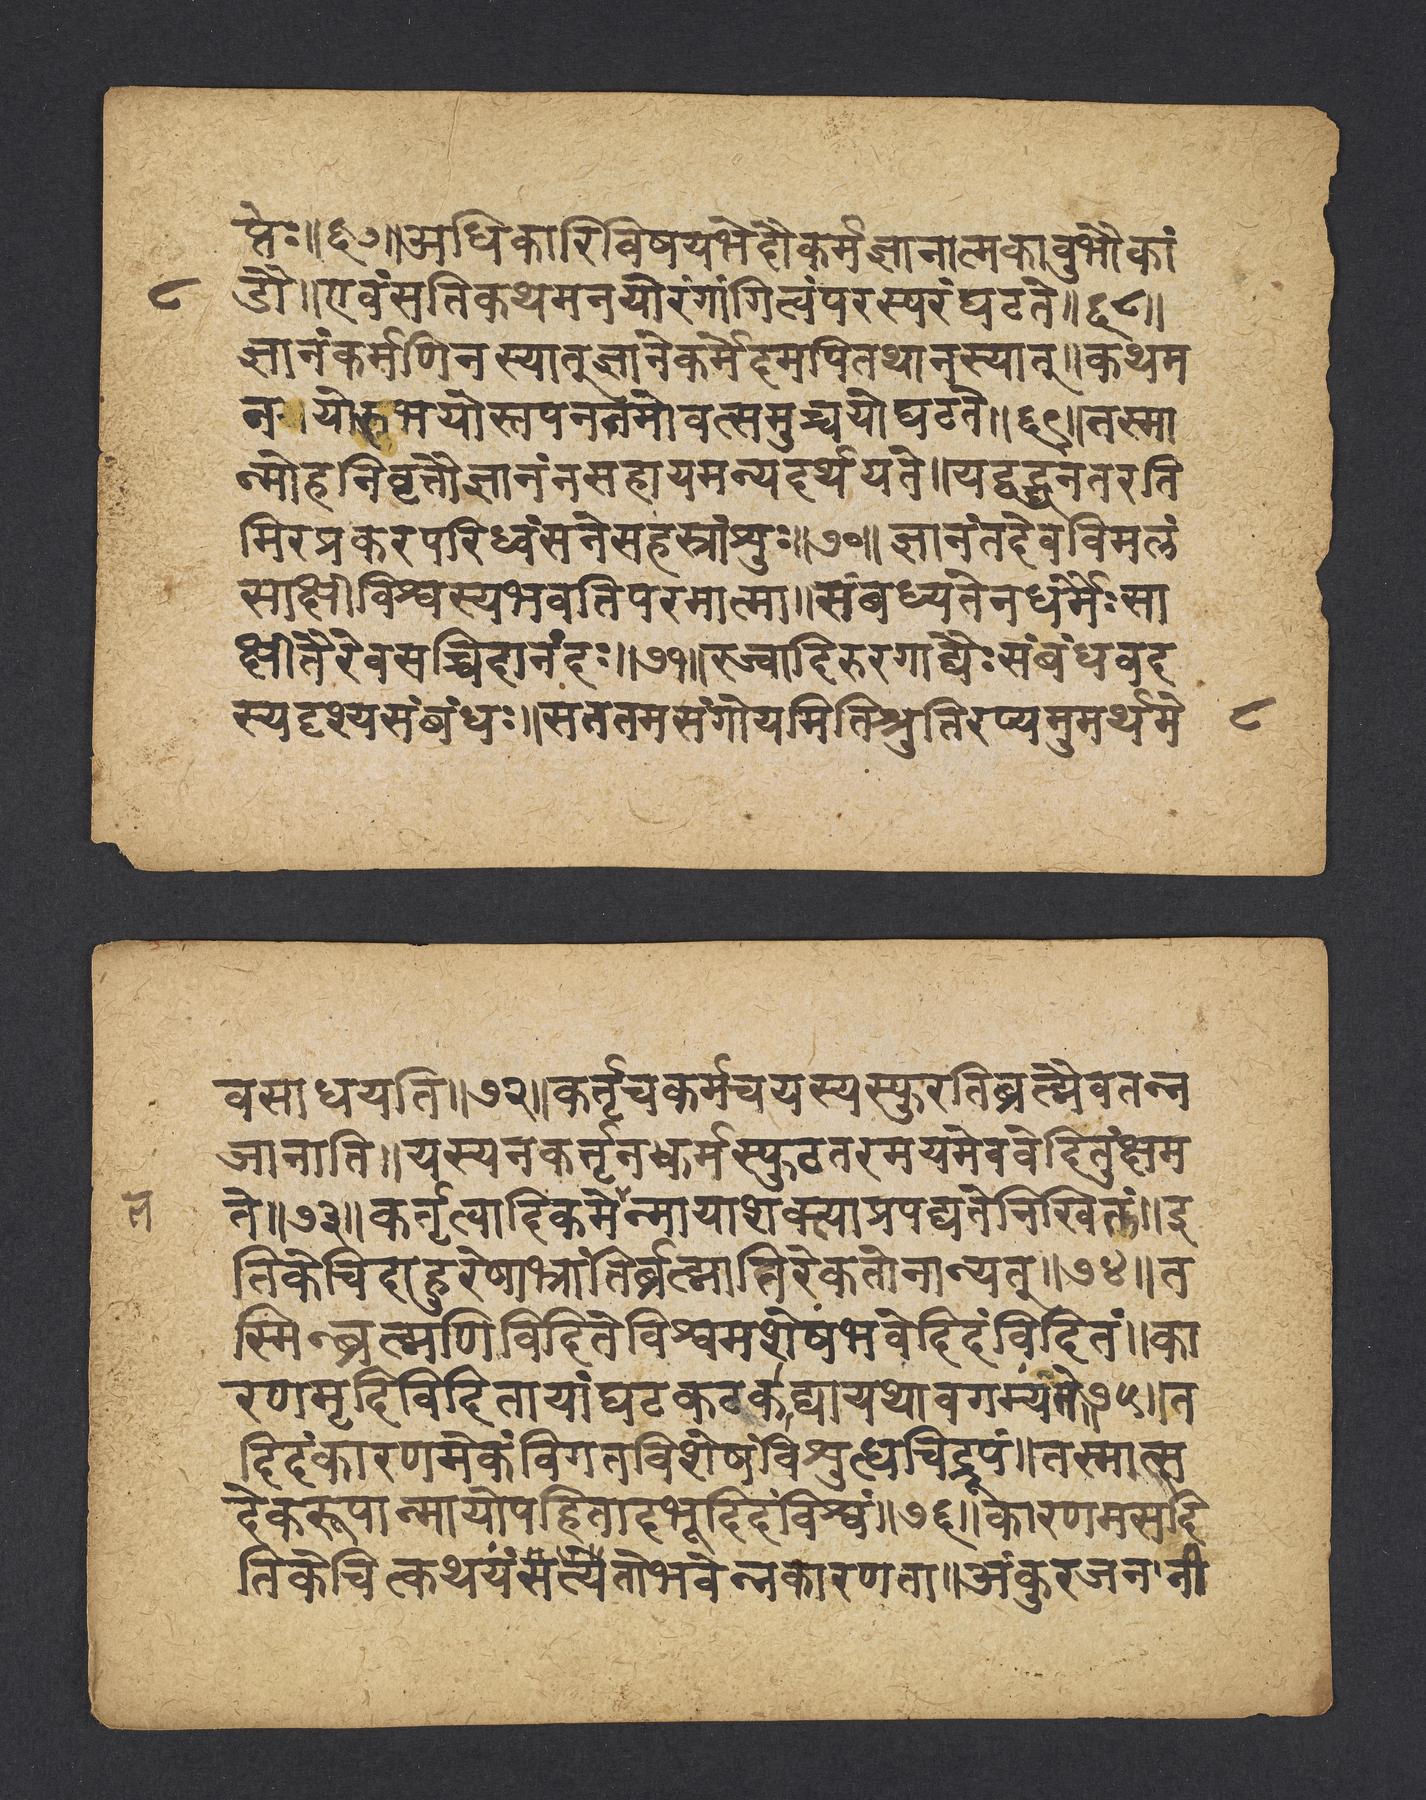 प्तेः॥६७॥अधिकारिविषयभेदौकर्मज्ञानात्मकावुभौकां
८
डौ॥एवंसतिकथमनयोरंगांगित्वंपरस्परंघटते॥६८॥
ज्ञानंकर्मणिनस्यात्‌ज्ञानेकर्मेदमपितथानस्यात्॥कथम
नयोरुभयोस्तपनतमोवत्समुच्चयोघटते॥६९॥तस्मा
न्मोहनिवृत्तौज्ञानंनसहायमन्यदर्थयते॥यद्वद्घनतरति
मिरप्रकरपरिध्वंसनेसहस्रांशुः॥७०॥ज्ञानंतदेवविमलं
साक्षीविश्वस्यभवतिपरमात्मा॥संबध्यतेनधर्मैःसा
क्षीतैरेवसच्चिदानंदः॥७१॥रज्वादिरुरगाद्यैःसंबंधवद
स्यदृश्यसंबंधः॥सततमसंगोयमितिश्रुतिरप्यमुमर्थमे
८
वसाधयति॥७२॥कर्तृचकर्मचयस्यस्फुरतिब्रह्मैवतन्न
जानाति॥यस्यनकर्तृनकर्मस्फुटतरमयमेववेदितुंक्षम
ते॥७३॥कर्तृत्वादिकमेन्मायाशक्त्याप्रपद्यतेनिखिलं॥इ
तिकेचिदाहुरेषाभ्रांतिर्ब्रह्मातिरेकतोनान्यत्॥७४॥त
स्मिन्ब्रह्मणिविदितेविश्वमशेषंभवेदिदंविदितं॥का
रणमृदिविदितायांघटकटकद्यायथावगम्यंते७५॥त
दिदंकारणमेकंविगतविशेषंविशुत्धचिद्रूपं॥तस्मात्स
देकरूपान्मायोपहितादभूदिदंविश्वं॥७६॥कारणमसदि
तिकेचित्कथयंसत्येतोभवेन्नकारणता॥अंकुरजननी